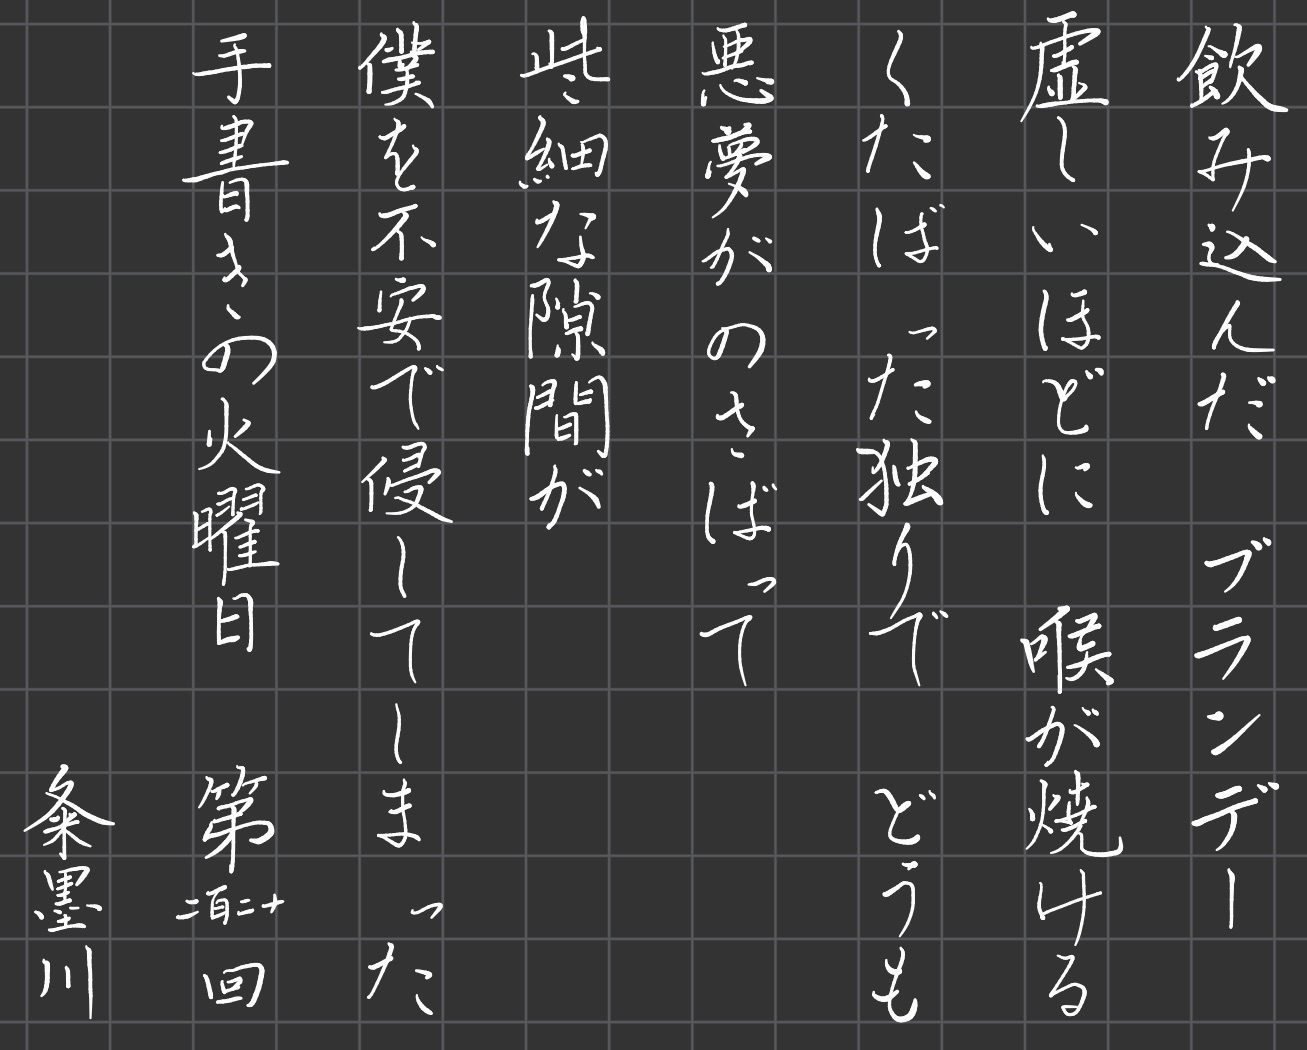 飲み込んだ ブランデー
虚しいほどに 喉が焼ける
くたばった独りで どうも
悪夢がのさばって
些細な隙間が
僕を不安で侵してしまった
手書きの火曜日 第二百二十回
粂墨川